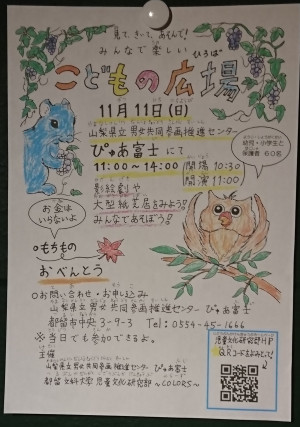 見て、きいて、あそんで!
みんなで楽しい
ひろば
こどもの広場
11月11日(日)
山梨県立男女共同参画推進センター
ぴゅあ富士にて
11:00~14:00
開場 10:30
開演 11:00
幼児・小学生と
保護者 60名
影絵劇や
大型紙芝居をみよう!
みんなであそぼう!
お金は
いらないよ
○もちもの
おべんとう
○お問い合わせ・お申し込み
山梨県立男女共同参画推進センター ぴゅあ富士
都留市中央3-9-3 Tel:0554-45-1666
※当日でも参加できるよ。
主催
山梨県立男女共同参画推進センター ぴゅあ富士
都留文科大学 児童文化研究部 ~COLORS~
児童文化研究部HP
QRコードを読みとってね!